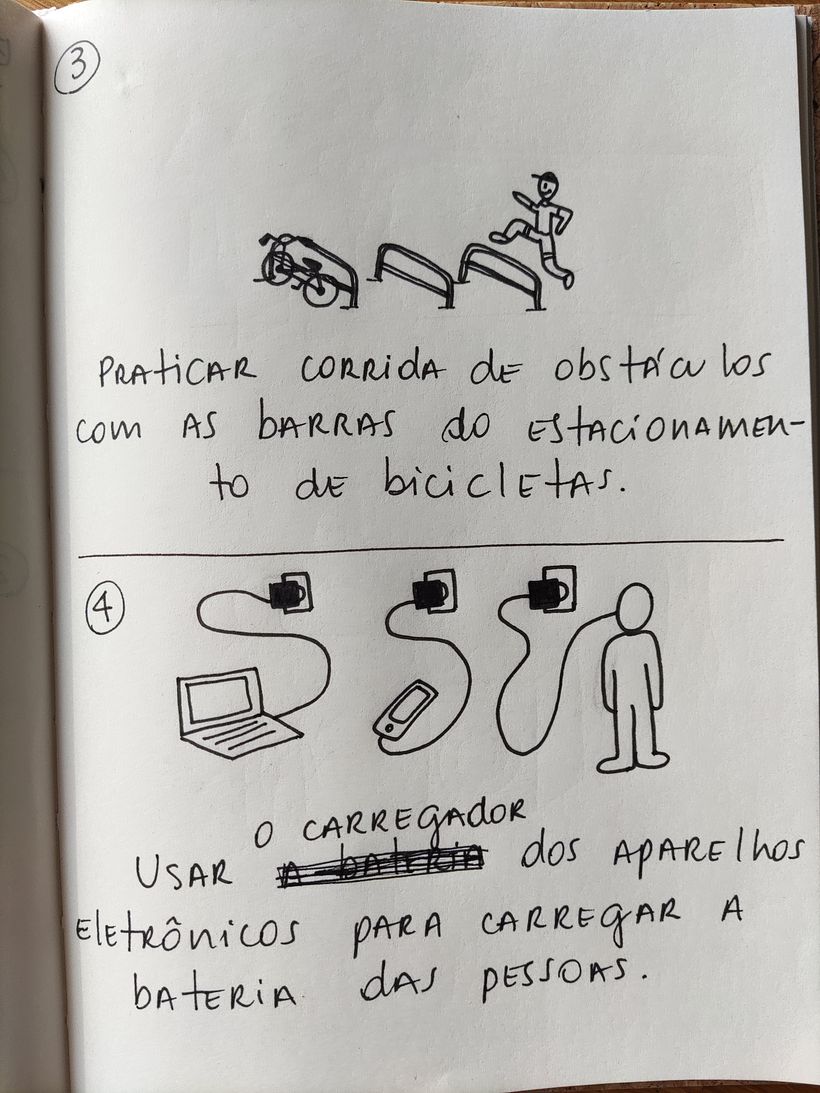 3
PRATICAR CORRIDA DE OBSTÁCULOS
COM AS BARRAS DO ESTACIONAMEN-
TO DE BICICLETAS.
4
O CARREGADOR
USAR A BATERIA DOS APARELHOS
ELETRÔNICOS PARA CARREGAR A
BATERIA DAS PESSOAS.